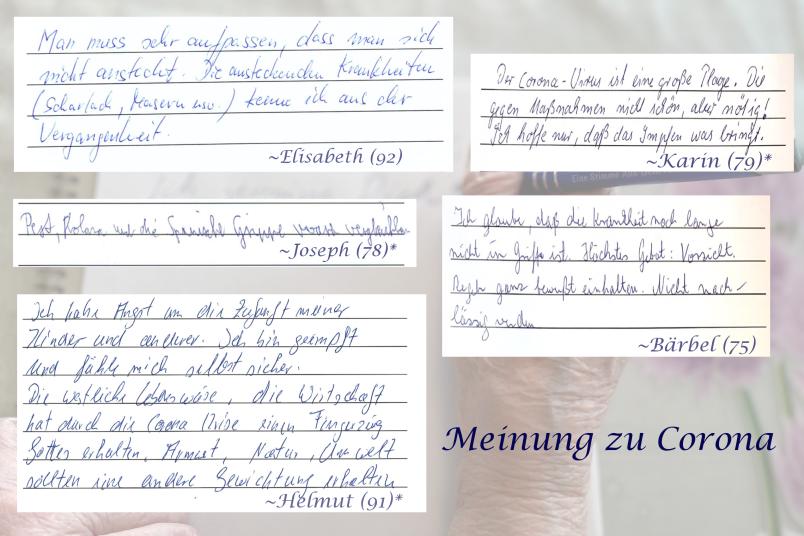 Man muss sehr aufpassen, dass man sich
nicht ansteckt. Die ansteckenden Krankheiten
(Scharlach, Masern usw.) kenne ich aus der
Vergangenheit.
~Elisabeth (92)
Der Corona-Virus ist eine große Plage. Die
gegen Maßnahmen nicht schön, aber nötig!
Ich hoffe nur, daß das Impfen was bringt.
~Karin (79)*
Eine Stimme
Pest, Kolera und die Spanische Grippe
~Joseph (78)*
Ich glaube, daß die Krankheit noch lange
nicht im Griffe ist. Höchstes Gebot: Vorsicht.
Regeln ganz bewußt einhalten. Nicht nach-
lässig werden
~Bärbel (75)
Ich habe Angst um die Zukunft meiner
Kinder und anderer. Ich bin geimpft
und fühle mich selbst sicher.
Die westliche Lebensweise, die Wirtschaft
hat durch die Corona Krise einen Fingerzeig
Gottes erhalten. Armut, Natur, Umwelt
sollten eine andere Gewichtung erhalten
~Helmut (91)*
Meinung zu Corona